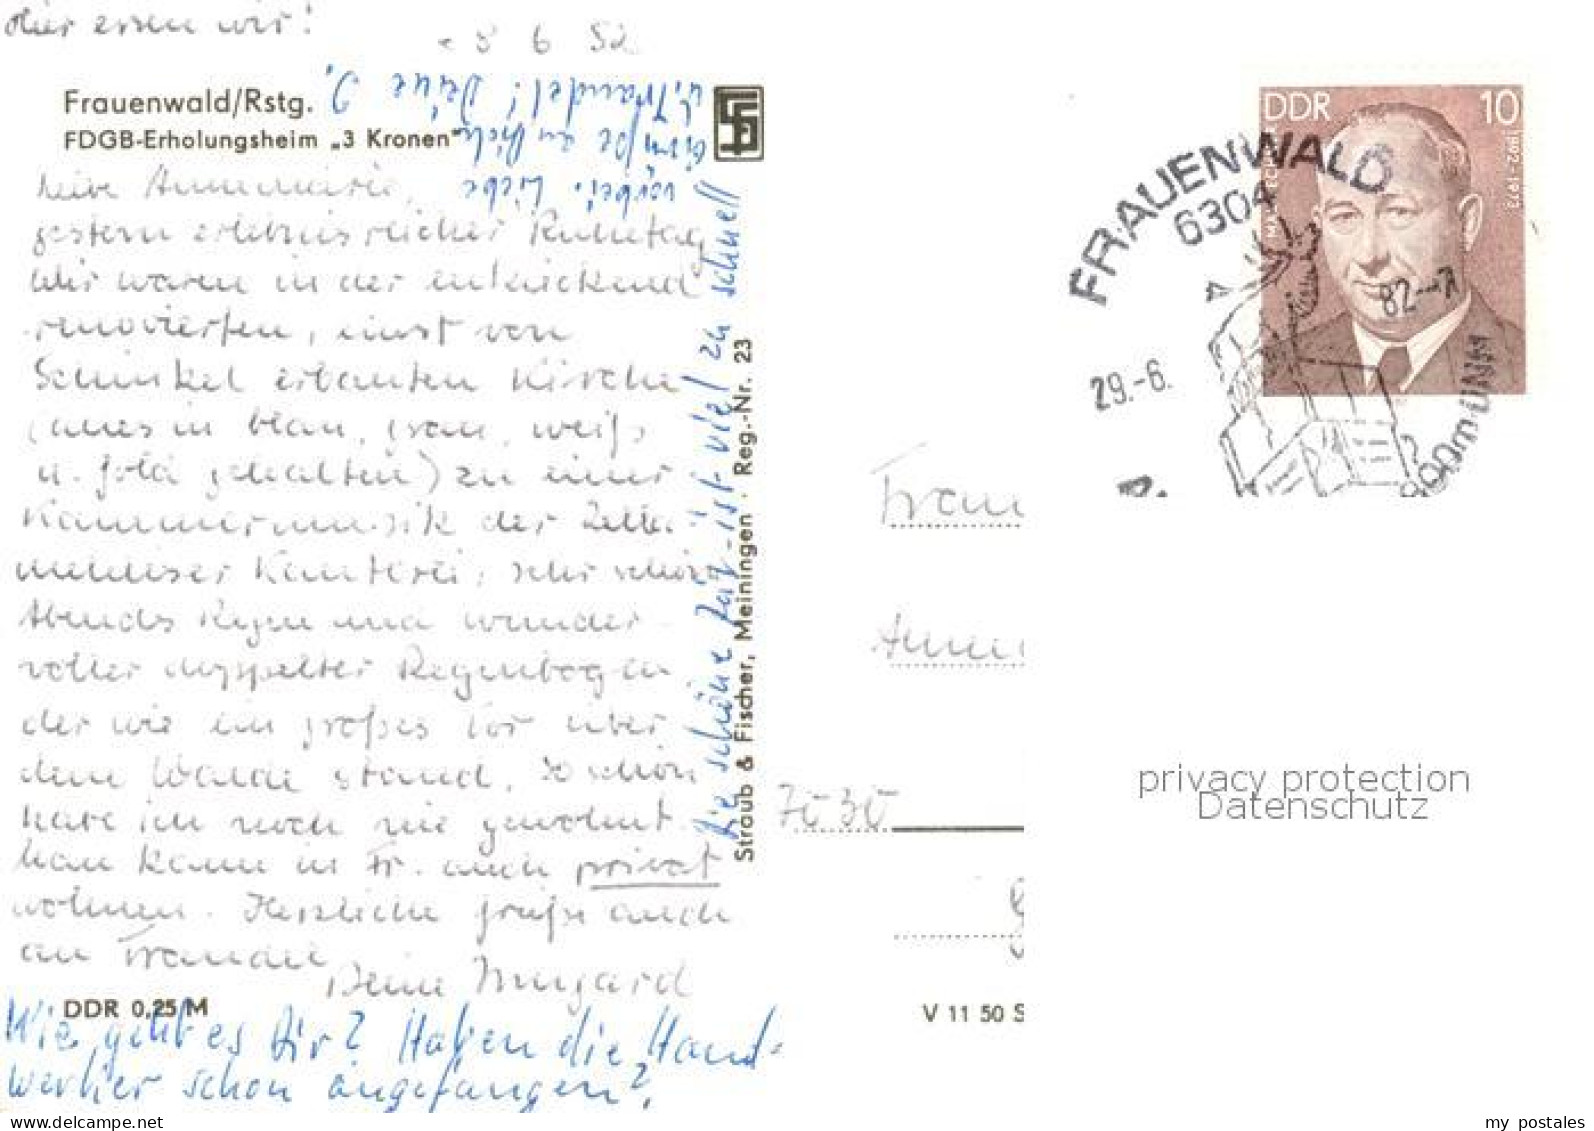 Hier essen wir!
28 6 82
Frauenwald/Rstg.
FDGB-Erholungsheim „3 Kronen"
Liebe Annemarie,
gestern erlebnisreicher Ruhetag
Wir waren in der entzückend
renovierten, einst von
Schinkel erbauten Kirche
(alles in blau, grau, weiß
u. gold gehalten) zu einer
Kammermusik der Zella-
mehliser Kantorei, sehr schön
Abends Regen und wunder-
voller doppelter Regenbogen
der wie ein großes Tor über
dem Walde stand. So schön
habe ich noch nie gewohnt.
Man kann in Fr. auch privat
wohnen. Herzliche Grüße auch
an Traudel
Deine Irmgard
DDR 0,25 M
Wie geht es Dir? Haben die Hand-
werker schon angefangen?
Die schöne Zeit ist viel zu schnell
vorbei. Liebe
Grüße an Dich
u. Traudel! Deine J.
Straub & Fischer, Meiningen · Reg.-Nr. 23
V 11 50 S
DDR 10
1892-1973
FRAUENWALD
6304
29.-6. 82-- 7
800m ü NN
Frau
Anne
7030
privacy protection
Datenschutz
my postales